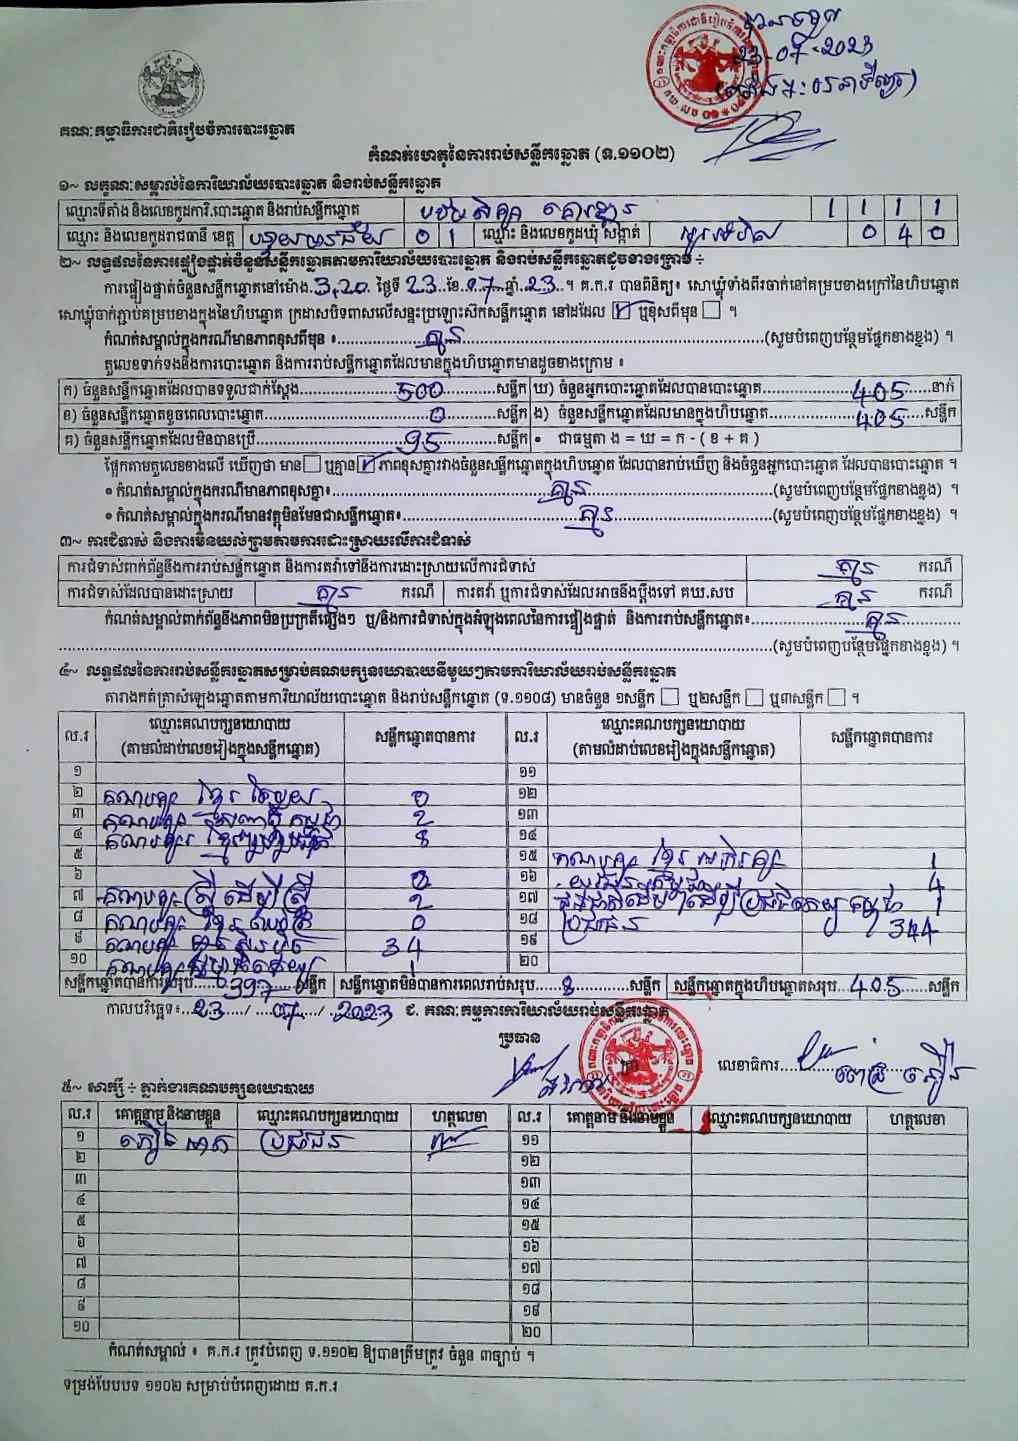 បានចម្លង
23-07-2023
គណៈកម្មាធិការជាតិរៀបចំការបោះឆ្នោត
កំណត់ហេតុនៃការរាប់សន្លឹកឆ្នោត (ទ.១១០២)
១~ លក្ខណៈសម្គាល់នៃការិយាល័យបោះឆ្នោត និងរាប់សន្លឹកឆ្នោត
ឈ្មោះទីតាំង និងលេខកូដការិ.បោះឆ្នោត និងរាប់សន្លឹកឆ្នោត 1 1 1 1
ឈ្មោះ និងលេខកូដរាជធានី ខេត្ត បន្ទាយមានជ័យ 0 1 ឈ្មោះ និងលេខកូដឃុំ សង្កាត់ 0 4 0
២~ លទ្ធផលនៃការផ្ទៀងផ្ទាត់ចំនួនសន្លឹកឆ្នោតតាមការិយាល័យបោះឆ្នោត និងរាប់សន្លឹកឆ្នោតដូចខាងក្រោម ÷
ការផ្ទៀងផ្ទាត់ចំនួនសន្លឹកឆ្នោតនៅម៉ោង 3,20 ថ្ងៃទី 23 ខែ 07 ឆ្នាំ 23 ។ គ.ក.រ បានពិនិត្យ៖ សោឃ្លុំទាំងពីរចាក់នៅគម្របខាងក្រៅនៃហិបឆ្នោត
សោឃ្លុំចាក់ភ្ជាប់គម្របខាងក្នុងនៃហិបឆ្នោត ក្រដាសបិទពាសលើសន្ទះប្រឡោះស៊កសន្លឹកឆ្នោត នៅដដែល ☑ ឬខុសពីមុន ☐ ។
កំណត់សម្គាល់ក្នុងករណីមានភាពខុសពីមុន ៖ គ្មាន (សូមបំពេញបន្ថែមផ្នែកខាងខ្នង) ។
តួលេខទាក់ទងនឹងការបោះឆ្នោត និងការរាប់សន្លឹកឆ្នោតដែលមានក្នុងហិបឆ្នោតមានដូចខាងក្រោម ៖
ក) ចំនួនសន្លឹកឆ្នោតដែលបានទទួលជាក់ស្តែង 500 សន្លឹក ឃ) ចំនួនអ្នកបោះឆ្នោតដែលបានបោះឆ្នោត 405 នាក់
ខ) ចំនួនសន្លឹកឆ្នោតខូចពេលបោះឆ្នោត 0 សន្លឹក ង) ចំនួនសន្លឹកឆ្នោតដែលមានក្នុងហិបឆ្នោត 405 សន្លឹក
គ) ចំនួនសន្លឹកឆ្នោតដែលមិនបានប្រើ 95 សន្លឹក • ជាធម្មតា ង = ឃ = ក - ( ខ + គ )
ផ្អែកតាមតួលេខខាងលើ ឃើញថា មាន ☐ ឬគ្មាន ☑ ភាពខុសគ្នារវាងចំនួនសន្លឹកឆ្នោតក្នុងហិបឆ្នោត ដែលបានរាប់ឃើញ និងចំនួនអ្នកបោះឆ្នោត ដែលបានបោះឆ្នោត ។
• កំណត់សម្គាល់ក្នុងករណីមានភាពខុសគ្នា៖ គ្មាន (សូមបំពេញបន្ថែមផ្នែកខាងខ្នង) ។
• កំណត់សម្គាល់ក្នុងករណីមានវត្ថុមិនមែនជាសន្លឹកឆ្នោត៖ គ្មាន (សូមបំពេញបន្ថែមផ្នែកខាងខ្នង) ។
៣~ ការជំទាស់ និងការមិនយល់ព្រមតាមការដោះស្រាយលើការជំទាស់
ការជំទាស់ពាក់ព័ន្ធនឹងការរាប់សន្លឹកឆ្នោត និងការតវ៉ាទៅនឹងការដោះស្រាយលើការជំទាស់ គ្មាន ករណី
ការជំទាស់ដែលបានដោះស្រាយ គ្មាន ករណី ការតវ៉ា ឬការជំទាស់ដែលអាចនឹងប្តឹងទៅ គឃ.សប គ្មាន ករណី
កំណត់សម្គាល់ពាក់ព័ន្ធនឹងភាពមិនប្រក្រតីផ្សេងៗ ឬ/និងការជំទាស់ក្នុងអំឡុងពេលនៃការផ្ទៀងផ្ទាត់ និងការរាប់សន្លឹកឆ្នោត៖ គ្មាន
(សូមបំពេញបន្ថែមផ្នែកខាងខ្នង) ។
៤~ លទ្ធផលនៃការរាប់សន្លឹកឆ្នោតសម្រាប់គណបក្សនយោបាយនីមួយៗតាមការិយាល័យរាប់សន្លឹកឆ្នោត
តារាងកត់ត្រាសំឡេងឆ្នោតតាមការិយាល័យបោះឆ្នោត និងរាប់សន្លឹកឆ្នោត (ទ.១១០៨) មានចំនួន ១សន្លឹក ☐ ឬ២សន្លឹក ☐ ឬ៣សន្លឹក ☐ ។
ល.រ ឈ្មោះគណបក្សនយោបាយ សន្លឹកឆ្នោតបានការ ល.រ ឈ្មោះគណបក្សនយោបាយ សន្លឹកឆ្នោតបានការ
(តាមលំដាប់លេខរៀងក្នុងសន្លឹកឆ្នោត) (តាមលំដាប់លេខរៀងក្នុងសន្លឹកឆ្នោត)
១ ១១
២ គណបក្ស ខ្មែរ 0 ១២
៣ គណបក្ស 2 ១៣
៤ គណបក្ស 8 ១៤
៥ ១៥ គណបក្ស ខ្មែរ 1
៦ 2 ១៦ 4
៧ គណបក្ស ស្ត្រី ដើម្បី ស្ត្រី 2 ១៧ 1
៨ គណបក្ស ខ្មែរ 0 ១៨ ប្រជាជន 344
៩ គណបក្ស 34 ១៩
១០ គណបក្ស 1 ២០
សន្លឹកឆ្នោតបានការសរុប 397 សន្លឹក សន្លឹកឆ្នោតមិនបានការពេលរាប់សរុប 8 សន្លឹក សន្លឹកឆ្នោតក្នុងហិបឆ្នោតសរុប 405 សន្លឹក
កាលបរិច្ឆេទ៖ 23 / 07 / 2023 ជ. គណៈកម្មការការិយាល័យរាប់សន្លឹកឆ្នោត
ប្រធាន
លេខាធិការ
៥~ សាក្សី ÷ ភ្នាក់ងារគណបក្សនយោបាយ
ល.រ គោត្តនាម និងនាមខ្លួន ឈ្មោះគណបក្សនយោបាយ ហត្ថលេខា ល.រ គោត្តនាម និងនាមខ្លួន ឈ្មោះគណបក្សនយោបាយ ហត្ថលេខា
១ ប្រជាជន ១១
២ ១២
៣ ១៣
៤ ១៤
៥ ១៥
៦ ១៦
៧ ១៧
៨ ១៨
៩ ១៩
១០ ២០
កំណត់សម្គាល់ ៖ គ.ក.រ ត្រូវបំពេញ ទ.១១០២ ឱ្យបានត្រឹមត្រូវ ចំនួន ៣ច្បាប់ ។
ទម្រង់បែបបទ ១១០២ សម្រាប់បំពេញដោយ គ.ក.រ